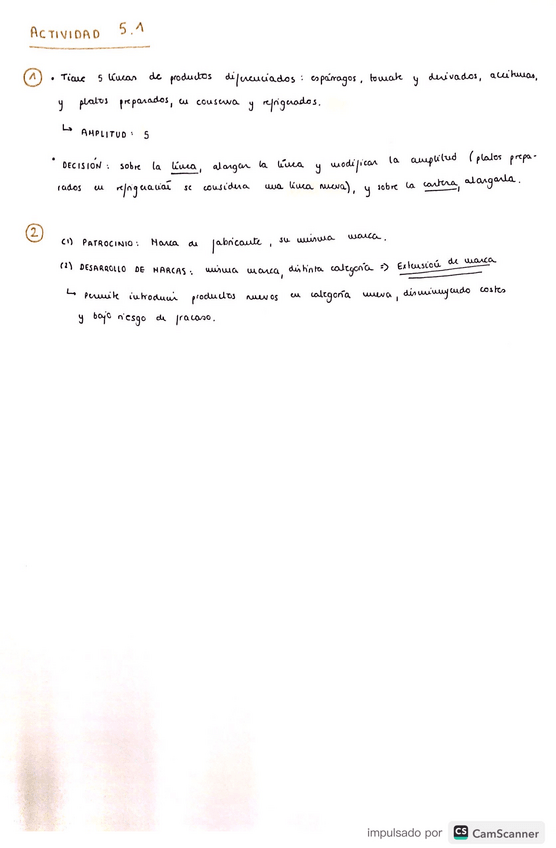 ACTIVIDAD 5.1
1 • Tiene 5 líneas de productos diferenciados: espárragos, tomate y derivados, aceitunas,
y platos preparados, en conserva y refrigerados.
↳ AMPLITUD: 5
• DECISIÓN: sobre la línea, alargar la línea y modificar la amplitud (platos prepa-
rados en refrigeración se considera una línea nueva), y sobre la cartera, alargarla.
2
(1) PATROCINIO: Marca de fabricante, su misma marca.
(2) DESARROLLO DE MARCAS: misma marca, distinta categoría => Extensión de marca
↳ Permite introducir productos nuevos en categoría nueva, disminuyendo costes
y bajo riesgo de fracaso.
impulsado por CS CamScanner